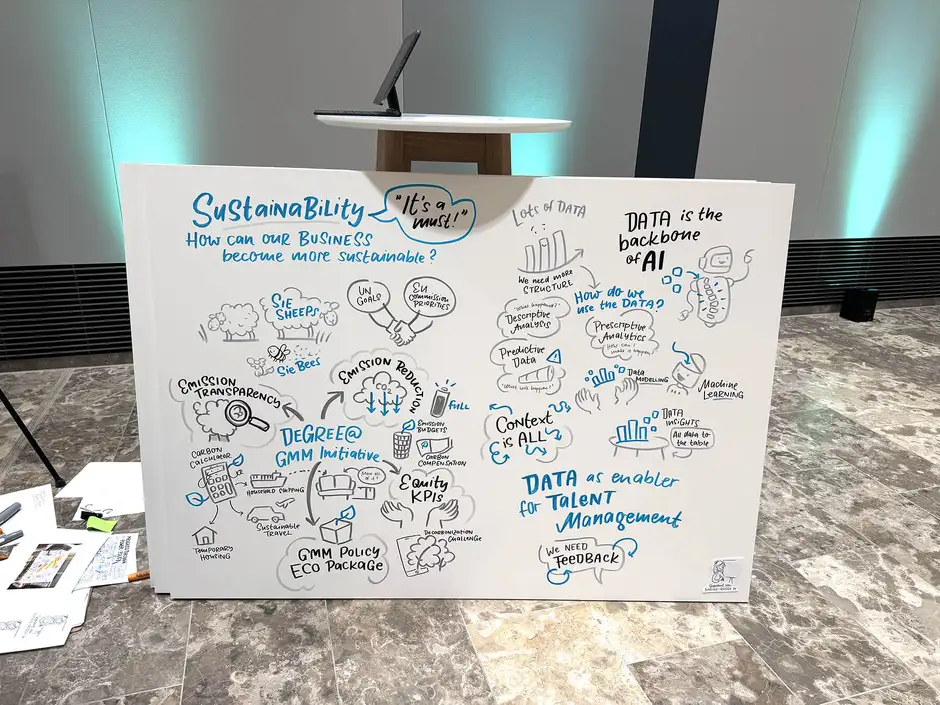 SUSTAINABILITY
"It's a
must!"
HOW CAN OUR BUSINESS
become more sustainable?
SIE
SHEEPS
Sie Bees
UN
GOALS
EU
COMMISSION
PRIORITIES
EMISSION
TRANSPARENCY
EMISSION REDUCTION
CO2
FULL
EMISSION
BUDGETS
CARBON
COMPENSATION
DEGREE@
GMM INITIATIVE
CARBON
CALCULATOR
HOUSEHOLD SHIPPING
Sustainable
TRAVEL
TEMPORARY
HOUSING
EQUITY
KPIs
DECARBONIZATION
CHALLENGE
GMM POLICY
ECO PACKAGE
LOTS OF DATA
We need more
STRUCTURE
"What happened?"
Descriptive
ANALYSIS
Predictive
DATA
"What will happen?"
DATA is the
backbone
of AI
HOW do we
use the DATA?
Prescriptive
Analytics
How can I
make it happen?
DATA
MODELLING
MACHINE
LEARNING
Context
is ALL
DATA
INSIGHTS
All data to
the table
DATA as enabler
for TALENT
Management
WE NEED
FEEDBACK